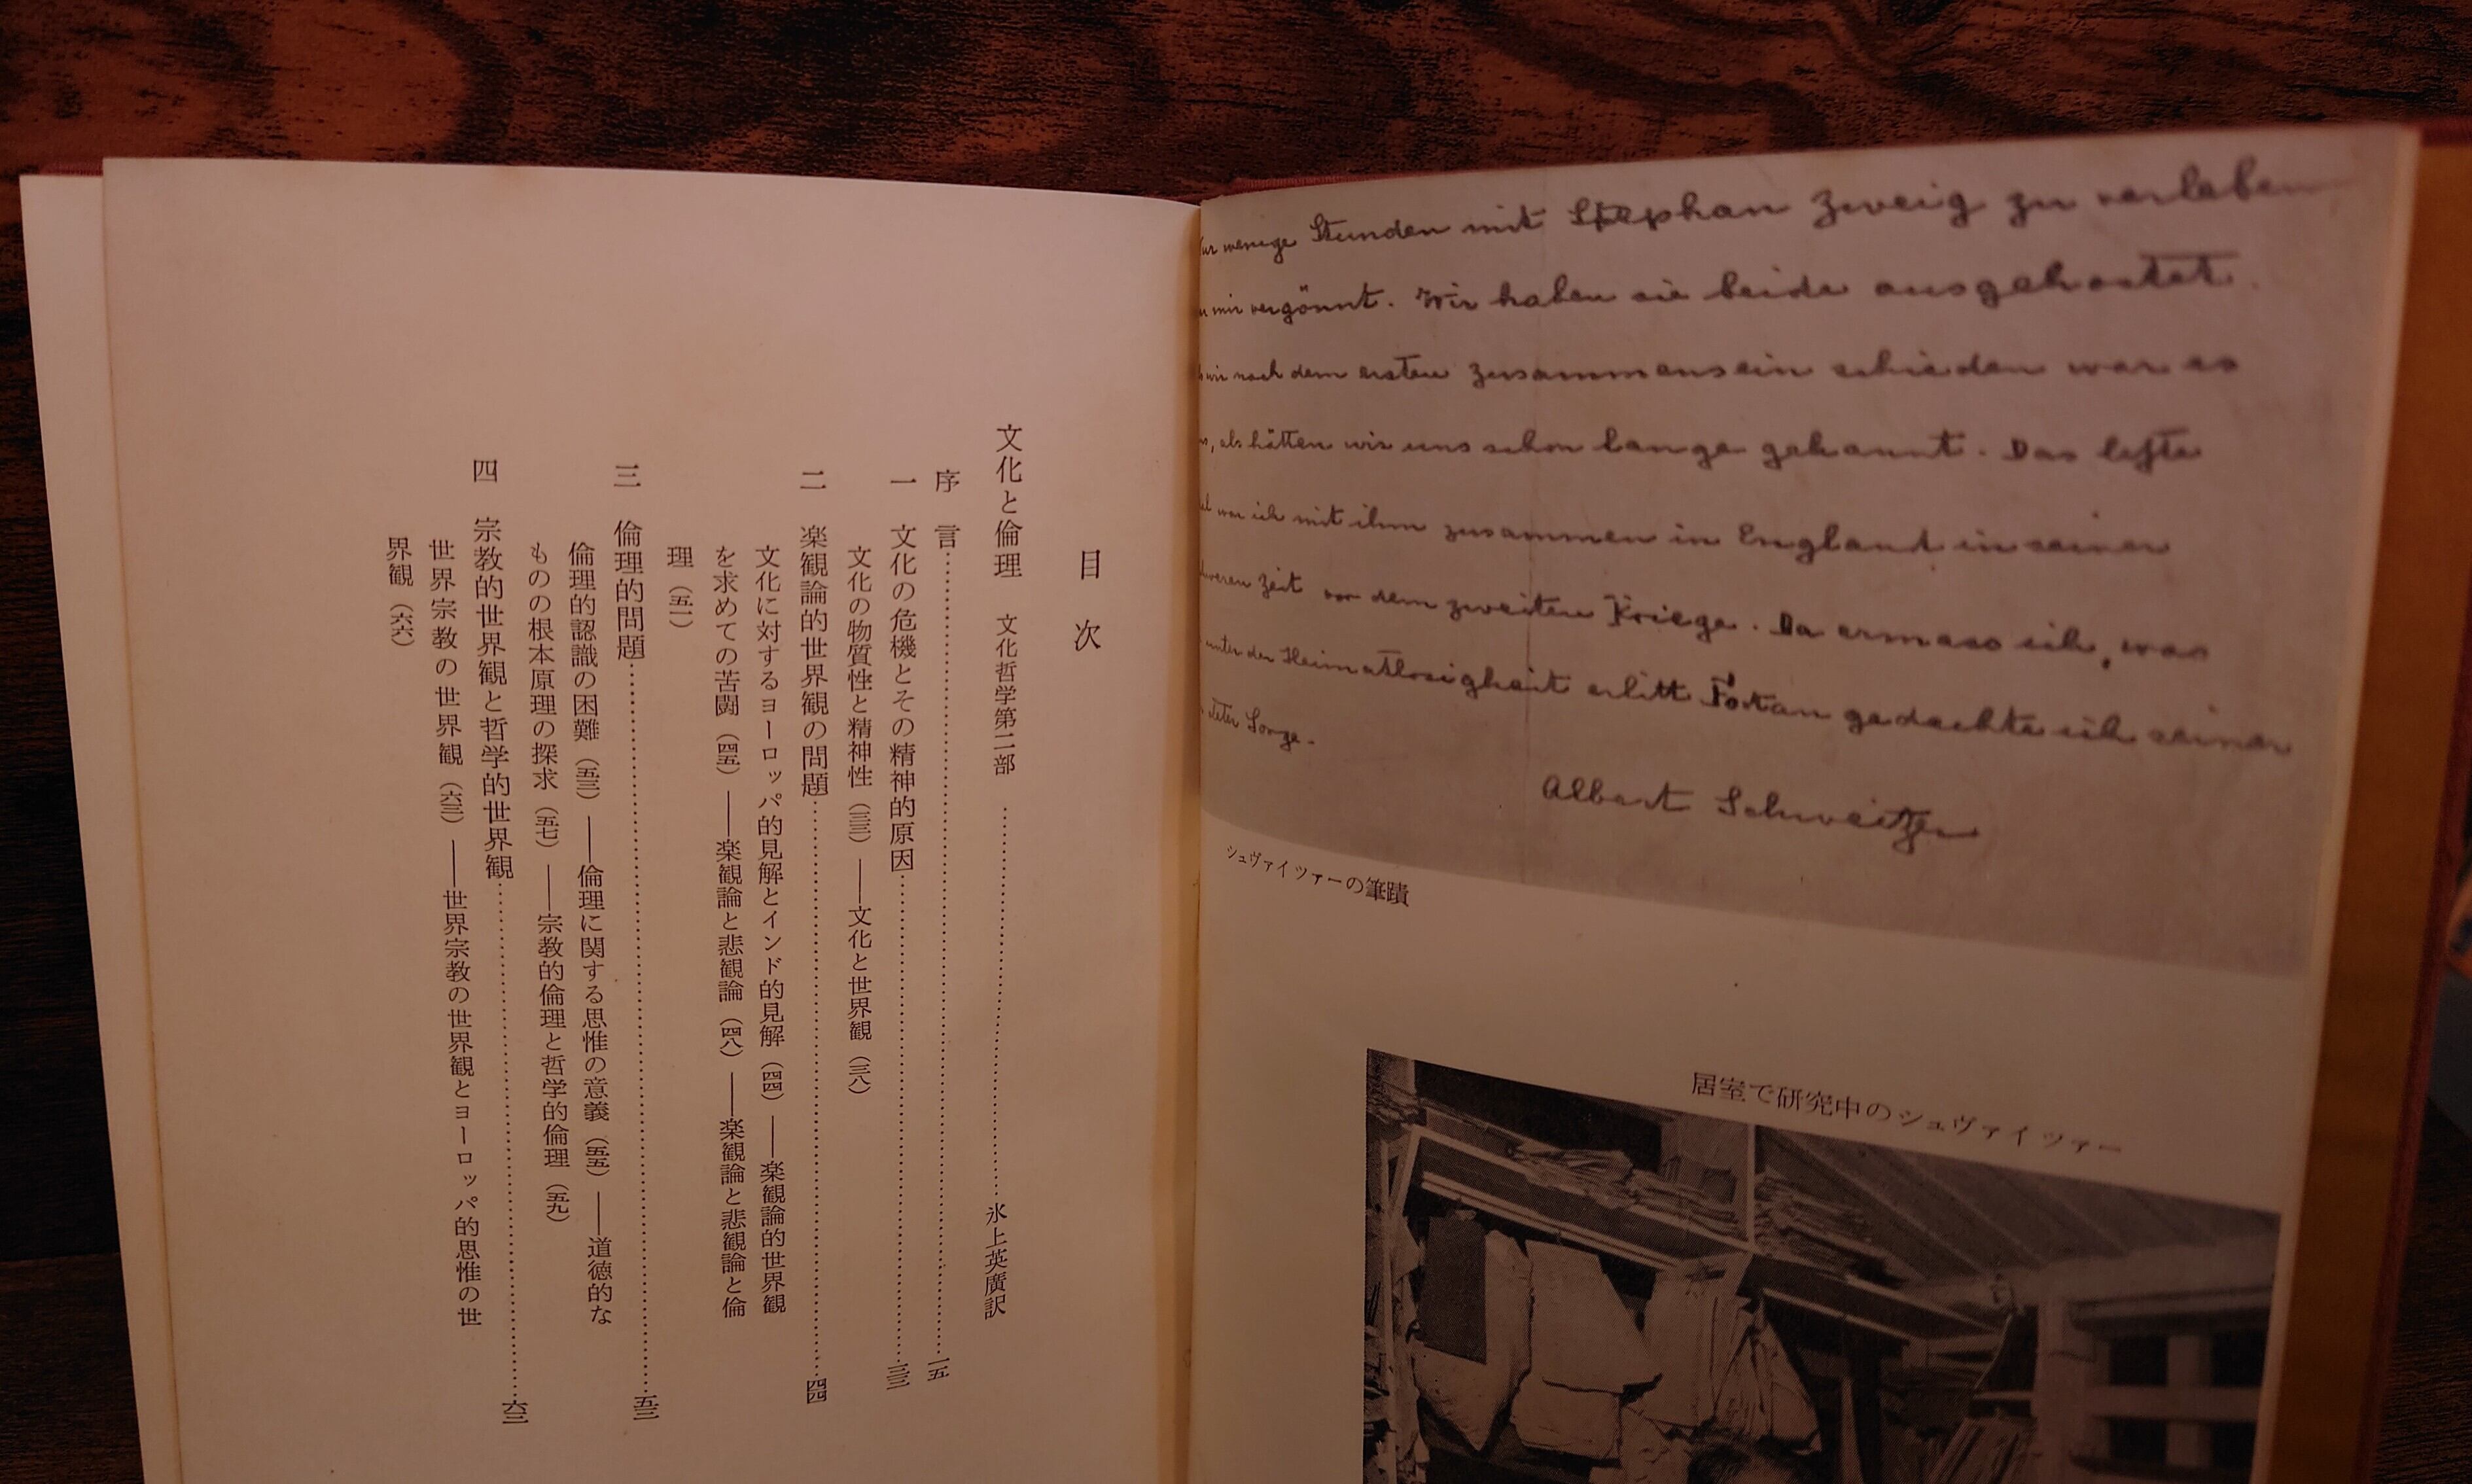 wenige Stunden mit Stephan Zweig zu verleben
mir vergönnt. Wir haben sie beide ausgekostet.
wir nach dem ersten Zusammensein schieden war es
als hätten wir uns schon lange gekannt. Das letzte
war ich mit ihm zusammen in England in seiner
Zeit vor dem zweiten Kriege. Da ermass ich, was
unter der Heimatlosigkeit erlitt Fortan gedachte ich seiner
steter Sorge.
Albert Schweitzer
シュヴァイツァーの筆蹟
居室で研究中のシュヴァイツァー
目次
文化と倫理 文化哲学第二部……氷上英廣訳
序言……一五
一 文化の危機とその精神的原因……三三
文化の物質性と精神性（三三）――文化と世界観（三八）
二 楽観論的世界観の問題……四四
文化に対するヨーロッパ的見解とインド的見解（四四）――楽観論的世界観
を求めての苦闘（四五）――楽観論と悲観論（四八）――楽観論と悲観論と倫
理（五一）
三 倫理的問題……五三
倫理的認識の困難（五三）――倫理に関する思惟の意義（五五）――道徳的な
ものの根本原理の探求（五七）――宗教的倫理と哲学的倫理（五九）
四 宗教的世界観と哲学的世界観……六三
世界宗教の世界観（六三）――世界宗教の世界観とヨーロッパ的思惟の世
界観（六六）